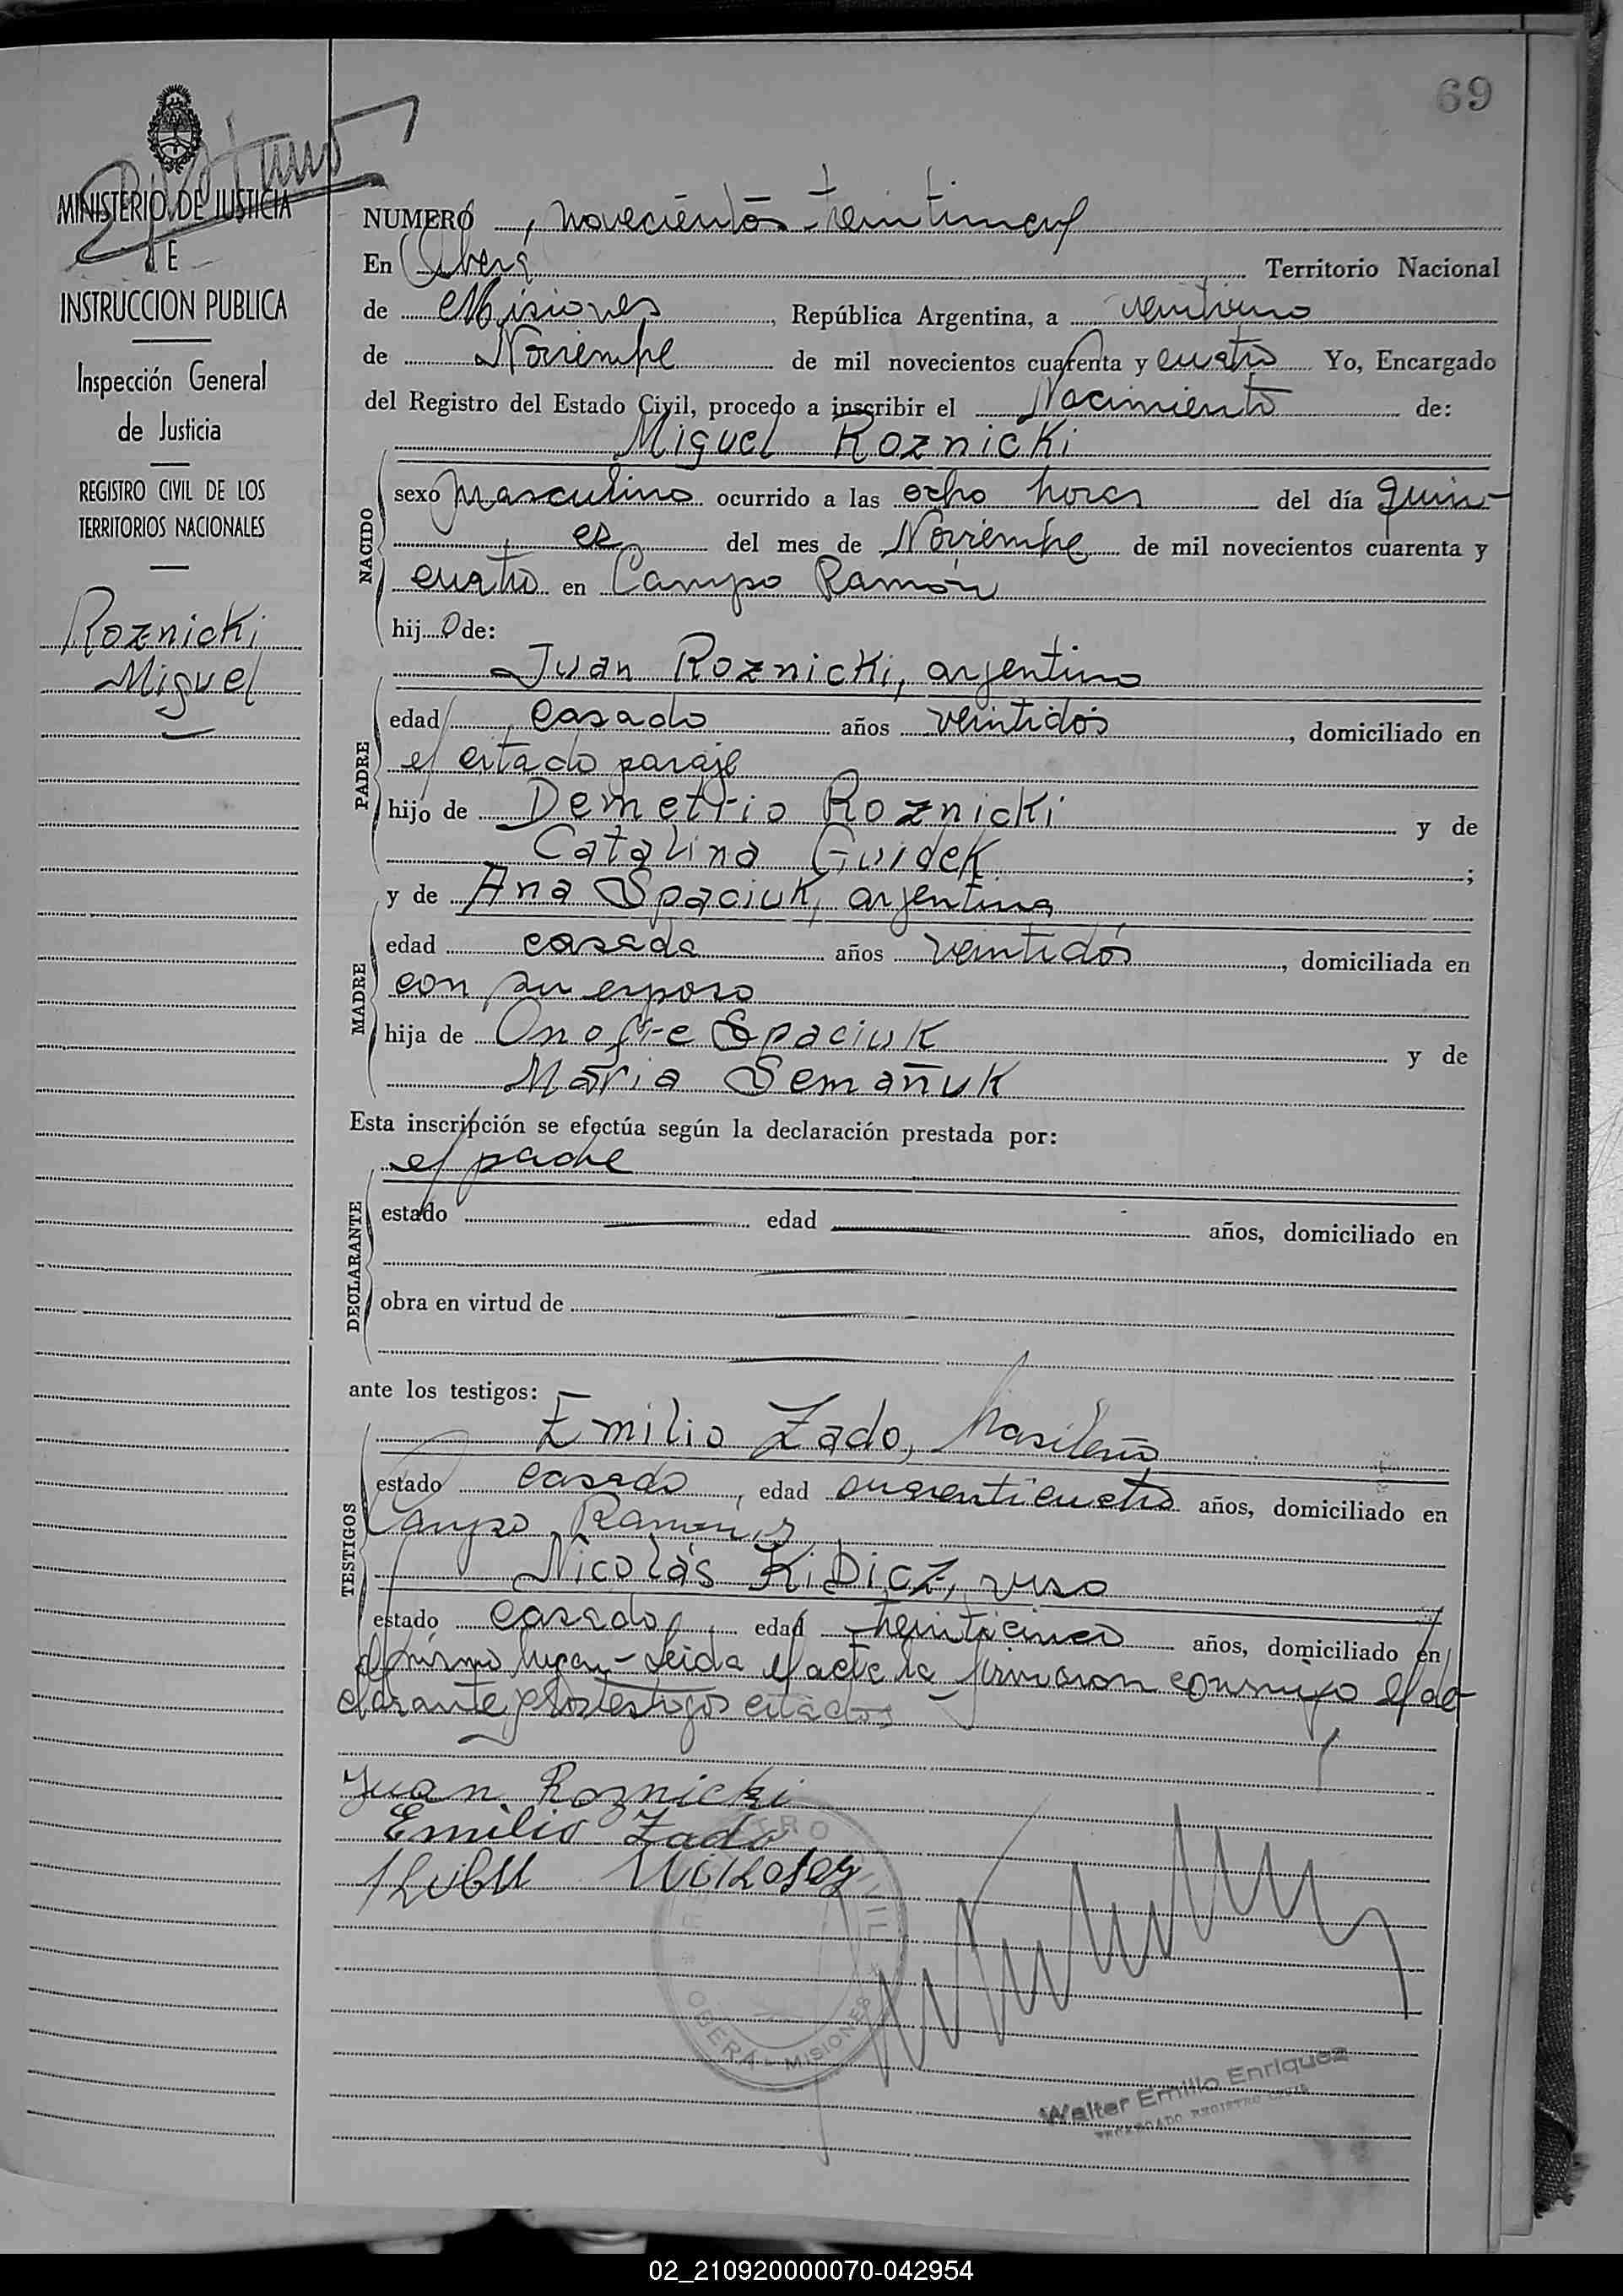 69
MINISTERIO DE JUSTICIA
E
INSTRUCCION PUBLICA
Inspección General
de Justicia
REGISTRO CIVIL DE LOS
TERRITORIOS NACIONALES
Roznicki
Miguel
NUMERO novecientos treintinueve
En Oberá Territorio Nacional
de Misiones, República Argentina, a veintiuno
de Noviembre de mil novecientos cuarenta y cuatro Yo, Encargado
del Registro del Estado Civil, procedo a inscribir el Nacimiento de:
Miguel Roznicki
NACIDO
sexo masculino ocurrido a las ocho horas del día quin-
ce del mes de Noviembre de mil novecientos cuarenta y
cuatro en Campo Ramón
hij o de:
Juan Roznicki, argentino
PADRE
edad casado años veintidós, domiciliado en
el citado paraje
hijo de Demetrio Roznicki y de
Catalina Guidek;
y de Ana Spaciuk, argentina
MADRE
edad casada años veintidós, domiciliada en
con su esposo
hija de Onofre Spaciuk y de
María Semañuk
Esta inscripción se efectúa según la declaración prestada por:
el padre
DECLARANTE
estado edad años, domiciliado en
obra en virtud de
ante los testigos:
Emilio Zado, brasileño
TESTIGOS
estado casado, edad cuarenticuatro años, domiciliado en
Campo Ramón y
Nicolás KiDicz, ruso
estado casado, edad treinticinco años, domiciliado en
el mismo lugar - Leida el acta la firmaron conmigo el de-
clarante y los testigos citados
Juan Roznicki
Emilio Zado
REGISTRO CIVIL
OBERA - MISIONES
Walter Emilio Enriquez
ENCARGADO REGISTRO CIVIL
02_210920000070-042954